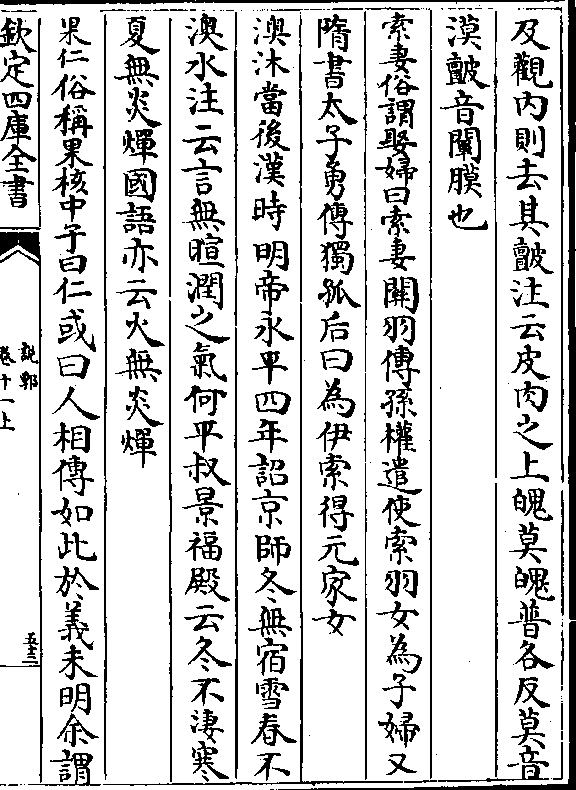 及觀内則去其皽注云皮肉之上魄莫魄普各反莫音
漠皽音闡膜也
索妻俗謂娶婦曰索妻關羽傳孫權遣使索羽女為子婦又
隋書太子勇傳獨孤后曰為伊索得元家女
澳沐當後漢時明帝永平四年詔京師冬無宿雪春不
澳沐注云言無暄潤之氣何平叔景福殿云冬不淒寒
夏無炎燀國語亦云火無炎燀
果仁俗稱果核中子曰仁或曰人相傳如此於義未明余謂
欽定四庫全書
說郛
卷十一上
五十三